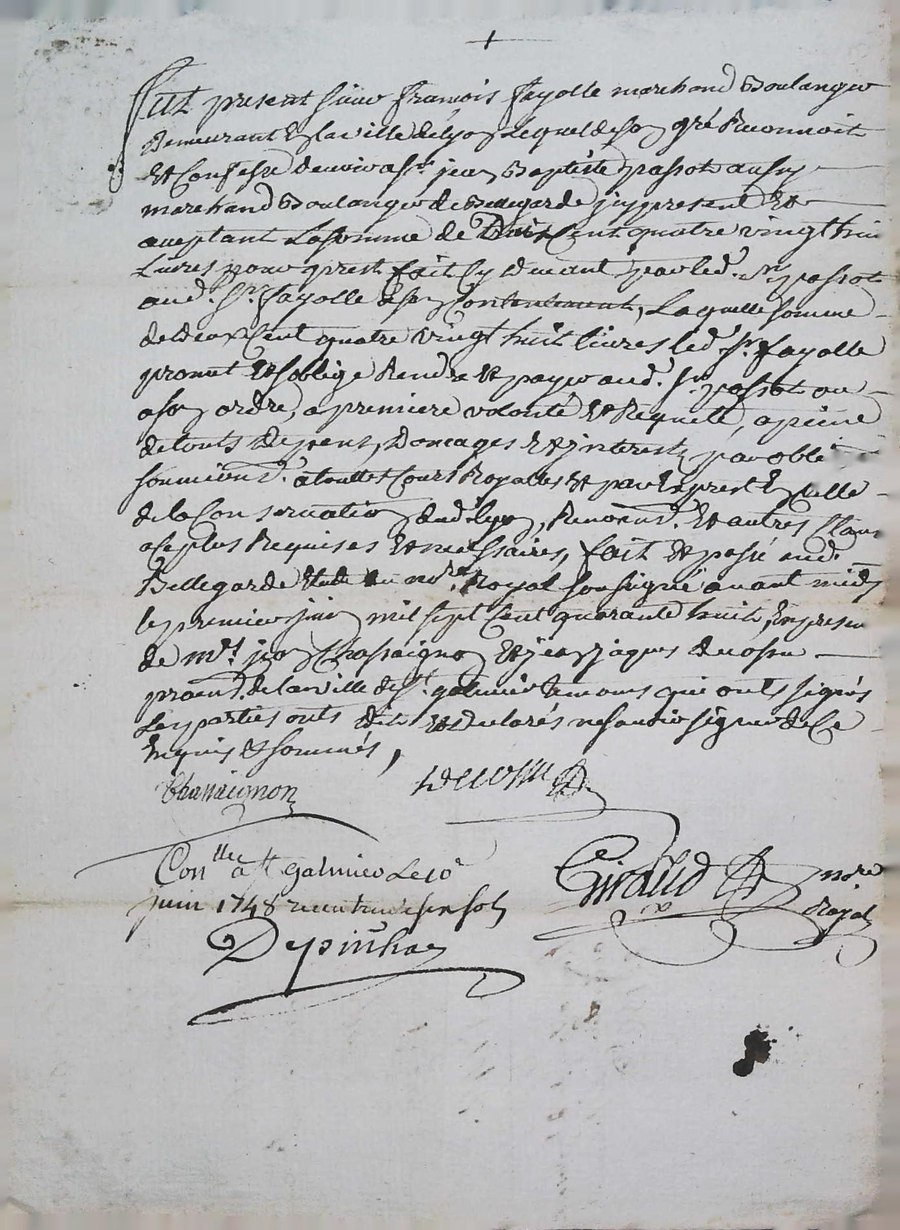 Fut present sieur François Fayolle marchand Boulanger
Demeurant En la ville de Lyon Lequel de son gré Reconnoit
Et Confesse devoir a Sr. jean Baptiste passot aussy
marchand Boulanger de Bellegarde jcy present Et
aceptant La somme de Deux Cent quatre vingt huit
Livres pour prest fait cy devant par led. Sr. passot
aud. Sr. Fayolle a son Contentement, Laquelle somme
de deux Cent quatre vingt huit livres led. Sr. Fayolle
promet Et soblige Rendre Et payer aud. Sr. passot ou
a son ordre, a premiere volonté Et Requete, a peine
de touts Depens, Domages Et interests, par oble
soumions. a touttes Cours Royalles Et par Exprest En celle
de la Conservation dud. Lyon, Renoons. Et autres Claus
Requises Et necessaires, fait Et passé aud.
Bellegarde Etude du nore. Royal soussigné avant midy
le premier juin mil sept Cent quarante huit, En presen
de mes. jean Chassaignon Et jean jaques
de la ville de St. galmier temoins qui onts signés
Les parties onts dit Et declarés ne savoir signer de Ce
Enquis Et sommés,
Chassaignon
Conllé a St Galmier Le 10e
juin 1748 recu trente six sols
Giraud nore
Royal
Depinhac